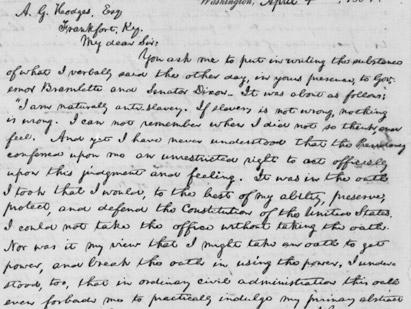 Washington, April 4
A. G. Hodges, Esq
Frankfort, Ky.
My dear Sir:
You ask me to put in writing the substance
of what I verbally said the other day, in your presence, to Gov-
ernor Bramlette and Senator Dixon. It was about as follows:
"I am naturally anti-slavery. If slavery is not wrong, nothing
is wrong. I can not remember when I did not so think, and
feel. And yet I have never understood that the Presidency
conferred upon me an unrestricted right to act officially
upon this judgment and feeling. It was in the oath
I took that I would, to the best of my ability, preserve,
protect, and defend the Constitution of the United States.
I could not take the office without taking the oath.
Nor was it my view that I might take an oath to get
power, and break the oath in using the power. I under-
stood, too, that in ordinary civil administration this oath
even forbade me to practically indulge my primary abstract